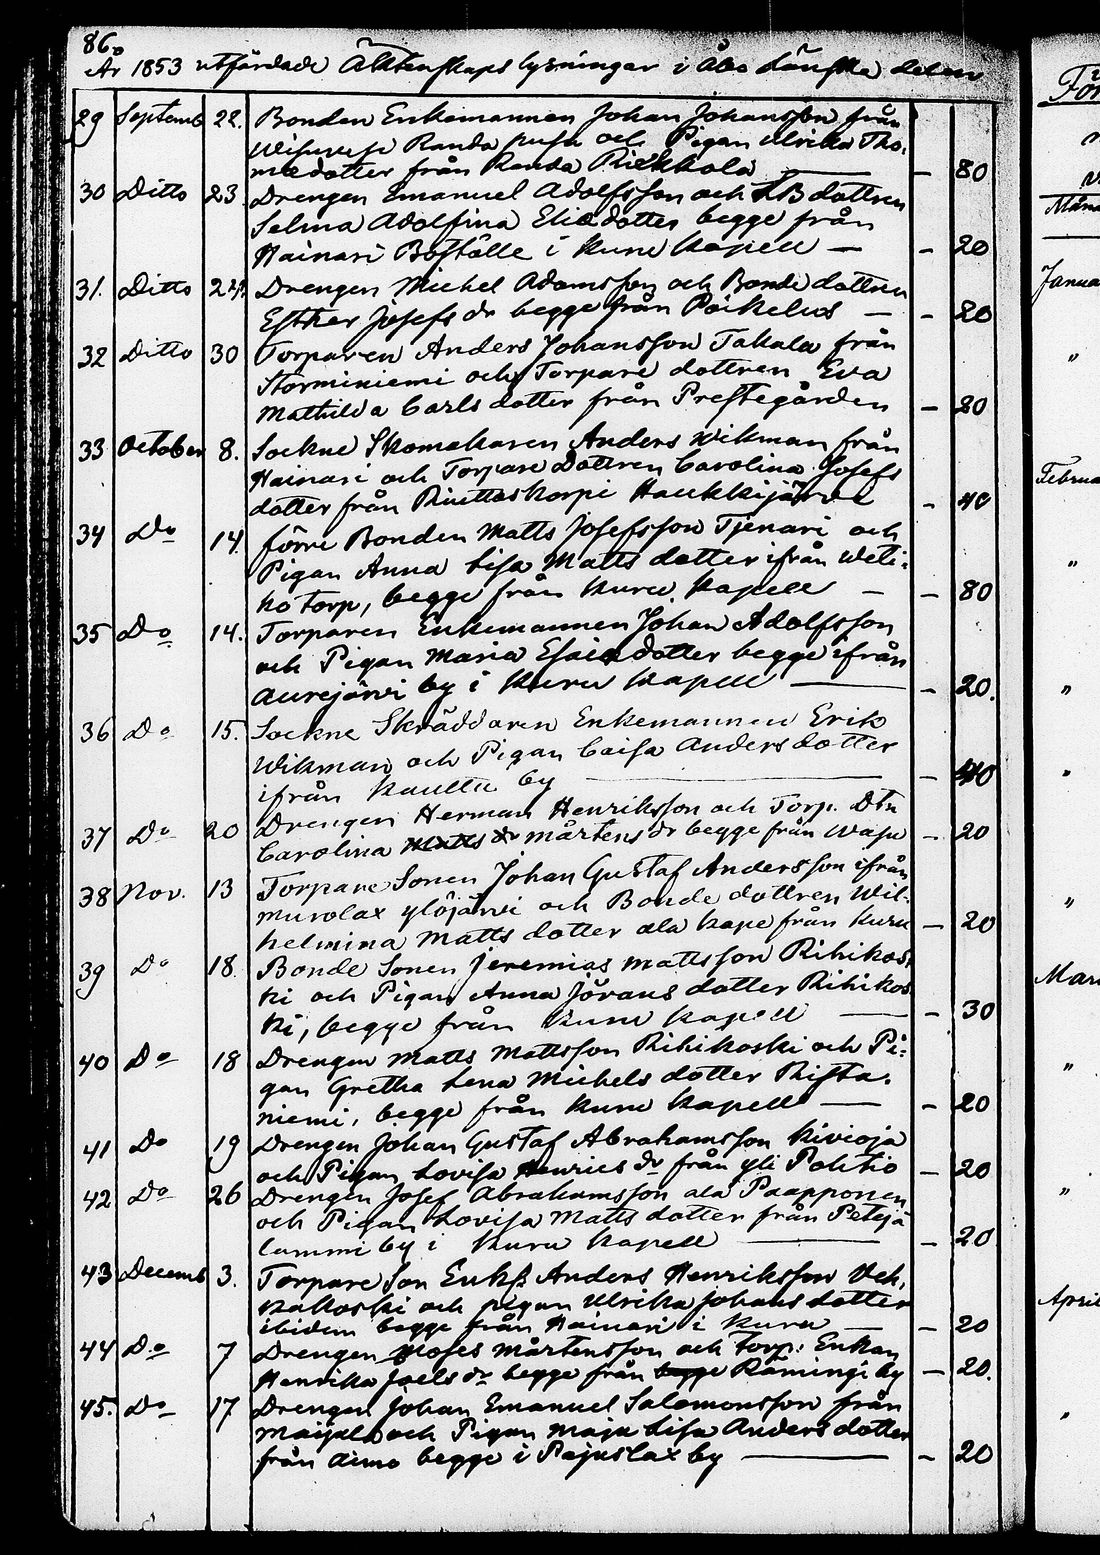 86.
År 1853 utfärdade Äktenskaps lysningar i Åbo Länska delen
29 Septemb 22. Bonden Enkemannen Johan Johansson från
Randa och Pigan Ulrika Tho-
masdotter från Randa Rickhola — — 80
30 Ditto 23. Drengen Emanuel Adolfsson och LB dottren
Selma Adolfina Eliædotter begge från
Hainari Boställe i Kuru Kapell — — 20
31. Ditto 24. Drengen Michel Adamsson och Bonde dottren
Esther Josefs dr begge från Poikelus — — 20
32 Ditto 30 Torparen Anders Johansson Takala från
Storminiemi och Torpare dottren Eva
Mathilda Carls dotter från Prestegården — 20
33 October 8. Sockne Skomakaren Anders Wikman från
Hainari och Torpare Dottren Carolina Josefs
dotter från Haukkijärvi — 40
34 Do 14. förre Bonden Matts Josefsson Tjenari och
Pigan Anna Lisa Matts dotter ifrån Weli-
ko torp, begge från Kuru Kapell — — 80
35 Do 14. Torparen Enkemannen Johan Adolfsson
och Pigan Maria Esaiædotter begge ifrån
Aurejärvi by i Kuru Kapell — — 20.
36 Do 15. Sockne Skräddaren Enkemannen Erik
Wikman och Pigan Caisa Anders dotter
ifrån by — — 40
37 Do 20 Drengen Herman Henriksson och Torp. Dtn
Carolina Matts dr Mårtens dr begge från — 20
38 Nov. 13 Torpare Sonen Johan Gustaf Andersson ifrån
Murolax Ylöjärvi och Bonde dottren Wil-
helmina Matts dotter ala Kape från Kuru — 20
39 Do 18. Bonde Sonen Jeremias Mattsson Rihikos-
ki och Pigan Anna Jörans dotter Rihikos-
ki, begge från Kuru Kapell — — 30
40 Do 18 Drengen Matts Mattsson Rihikoski och Pi-
gan Gretha Lena Michels dotter Rista-
niemi, begge från Kuru Kapell — — 20
41 Do 19 Drengen Johan Gustaf Abrahamsson Kivioja
och Pigan Lovisa Henrics dr från Yli Pohtio — 20
42 Do 26 Drengen Josef Abrahamsson ala Paapponen
och Pigan Lovisa Matts dotter från Petejä
lammi by i Kuru Kapell — — 20
43 Decemb 3. Torpare Son Enkl Anders Henriksson Veh-
kakoski och pigan Ulrika Johans dotter
ibidem begge från Hainari i Kuru — — 20
44 Do 7 Drengen Moses Mårtensson och Torp: Enkan
Henrika Joels dr begge från begge Rämingi by — 20.
45. Do 17 Drengen Johan Emanuel Salomonsson från
Maijala och Pigan Maja Lisa Anders dotter
från Aimo begge i Pajuslax by — — 20
För
Måna
Janua
"
Februa
"
"
"
"
Mars
"
"
April
"